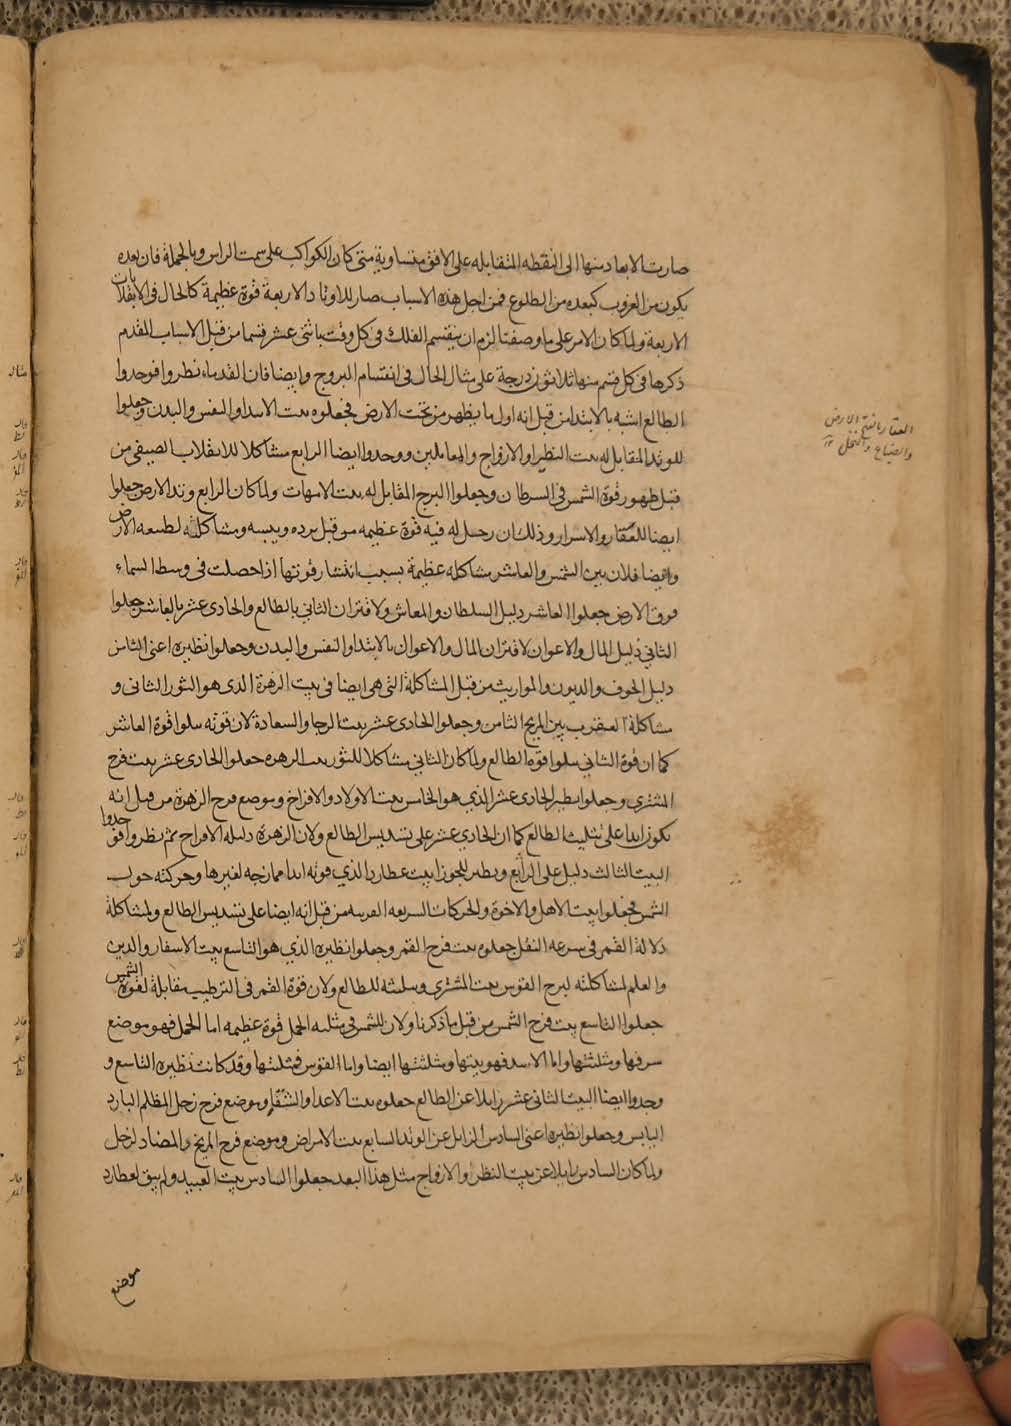 صارت الابعاد منها الى النقطه المتقابله على الافق متساوية متى كان الكواكب على سمت الراس وبالجملة فان بعده
يكون من الغروب كبعده من الطلوع فمن اجل هذه الاسباب صار للاوتاد الاربعة قوة عظيمة كالحال فى الانقلابات
الاربعة ولما كان الامر على ما وصفنا لزم ان ينقسم الفلك فى كل وقت باثنى عشر قسما من قبل الاسباب المقدم
ذكرها فى كل قسم منها ثلاثون درجة على مثال الحال فى انقسام البروج وايضا فان القدماء نظروا فوجدوا
الطالع اشبه بالابتدا من قبل انه اول ما يظهر من تحت الارض فجعلوه بيت الابتدا والنفس والبدن وجعلوا
للوتد المقابل له بيت النظير والازواج والمعاملين ووجدوا ايضا الرابع مشاكلا للانقلاب الصيفى من
قبل ظهور قوة الشمس فى السرطان وجعلوا البرج المقابل له بيت الامهات ولما كان الرابع وتد الارض جعلوا
ايضا للعقار والاسرار وذلك ان زحل له فيه قوة عظيمه من قبل برده ويبسه ومشاكلته لطبيعه الارض
وايضا فلان بين الشمس والعاشر مشاكله عظيمة بسبب انتشار قوتها اذا حصلت فى وسط السماء
فوق الارض جعلوا العاشر دليل السلطان والمعاش ولاقتران الثانى بالطالع والحادى عشر بالعاشر جعلوا
الثانى دليل المال والاعوان لاقتران المال والاعوان بالابتدا والنفس والبدن وجعلوا نظيره اعنى الثامن
دليل الخوف والديون والمواريث من قبل المشاكلة التى هى ايضا فى بيت الزهرة الذى هو الثور الثانى و
مشاكلة العقرب بين المريخ الثامن وجعلوا الحادى عشر بيت الرجا والسعادة لان قوته تتلوا قوة العاشر
كما ان قوة الثانى تتلوا قوة الطالع ولما كان الثانى مشاكلا للثور بيت الزهره جعلوا الحادى عشر بيت فرح
المشترى وجعلوا نظير الحادى عشر الذى هو الخامس بيت الاولاد والافراح وموضع فرح الزهرة من قبل انه
يكون ابدا على تثليث الطالع كما ان الحادى عشر على تسديس الطالع ولان الزهرة دليله الافراح ثم نظروا فوجدوا
البيت الثالث دليل على الرابع ونظير للجوزا بيت عطارد الذى قوته ابدا ممازجه لغيرها وحركته حول
الشمس فجعلوا بيت الاهل والاخوة والحركات السريعه القريبه من قبل انه ايضا على تسديس الطالع ولمشاكلة
دلالة القمر فى سرعه النقل جعلوه بيت فرح القمر وجعلوا نظيره الذى هو التاسع بيت الاسفار والدين
والعلم لمشاكلته لبرج القوس بيت المشترى وتثليثه للطالع ولان قوة القمر فى الترطيب مقابلة لقوة الشمس
جعلوا التاسع بيت فرح الشمس من قبل ما ذكرنا ولان للشمس فى مثلثه الحمل قوة عظيمه اما الحمل فهو موضع
شرفها ومثلثتها واما الاسد فهو بيتها ومثلثتها ايضا واما القوس فمثلثتها وقد كانت نظيره التاسع و
وجدوا ايضا البيت الثانى عشر زايلا عن الطالع جعلوه بيت الاعدا والشقا وموضع فرح زحل المظلم البارد
اليابس وجعلوا نظيره اعنى السادس الزايل عن الوتد السابع بيت الامراض وموضع فرح المريخ والمضاد لزحل
ولما كان السادس زايلا عن بيت النظر والازواج مثل هذا البعد جعلوا السادس بيت العبيد ولم يبق لعطارد
موضع
العقار بالفتح الارض
والضياع والنخل